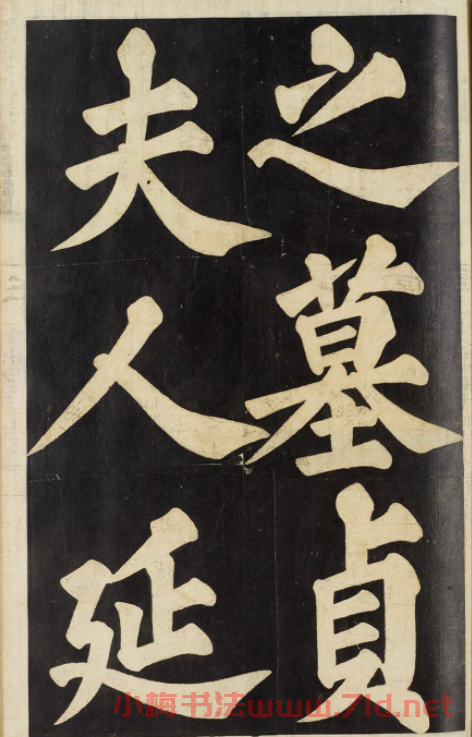 之墓貞
夫人延
小梅书法www.7ld.net